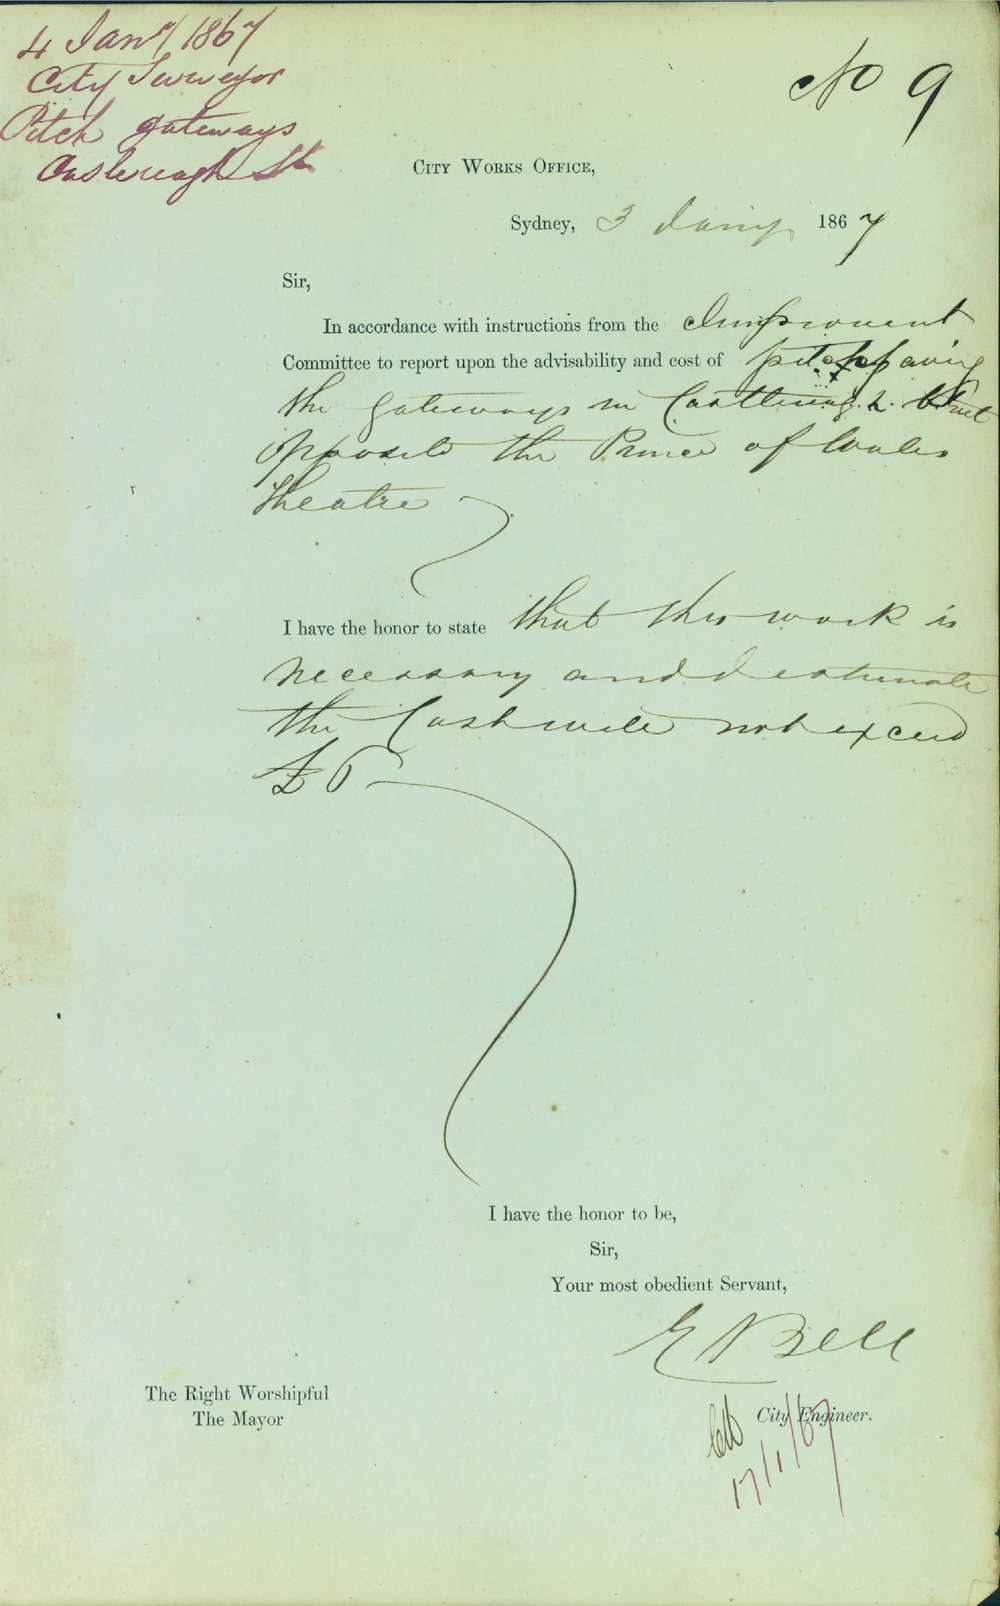 4 Jany/1867
City Surveyor
Pitch gateways
Castlereagh St
No 9
CITY WORKS OFFICE,
Sydney, 3 Jany 1867
Sir,
In accordance with instructions from the Improvement
Committee to report upon the advisability and cost of pitch paving
the gateways in Castlereagh Street
opposite the Prince of Wales
Theatre
I have the honor to state that this work is
necessary and I estimate
the Cost will not exceed
£
I have the honor to be,
Sir,
Your most obedient Servant,
E Bell
City Engineer.
The Right Worshipful
The Mayor
17/1/67